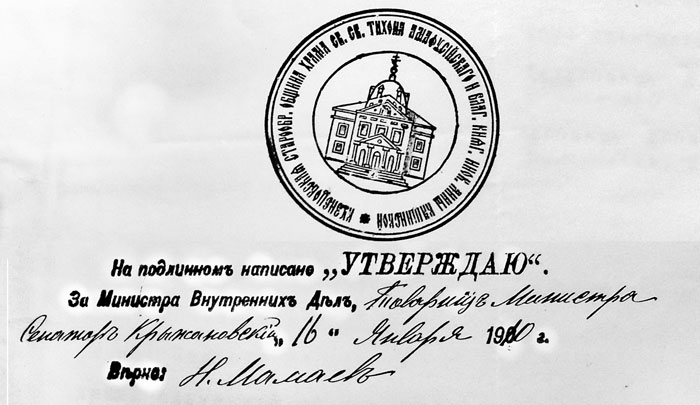 СТАРООБР. ОБЩИНА ХРАМА СВ. СВ. ТИХОНА АМАФУСІЙСКАГО И БЛАГ. КНЯГ. ИНОК. АННЫ КАШИНСКОЙ
На подлинномъ написано „УТВЕРЖДАЮ“.
За Министра Внутреннихъ Дѣлъ, Товарищъ Министра
Сенаторъ Крыжановскій, „16“ Января 1910 г.
Вѣрно: Н. Мамаевъ